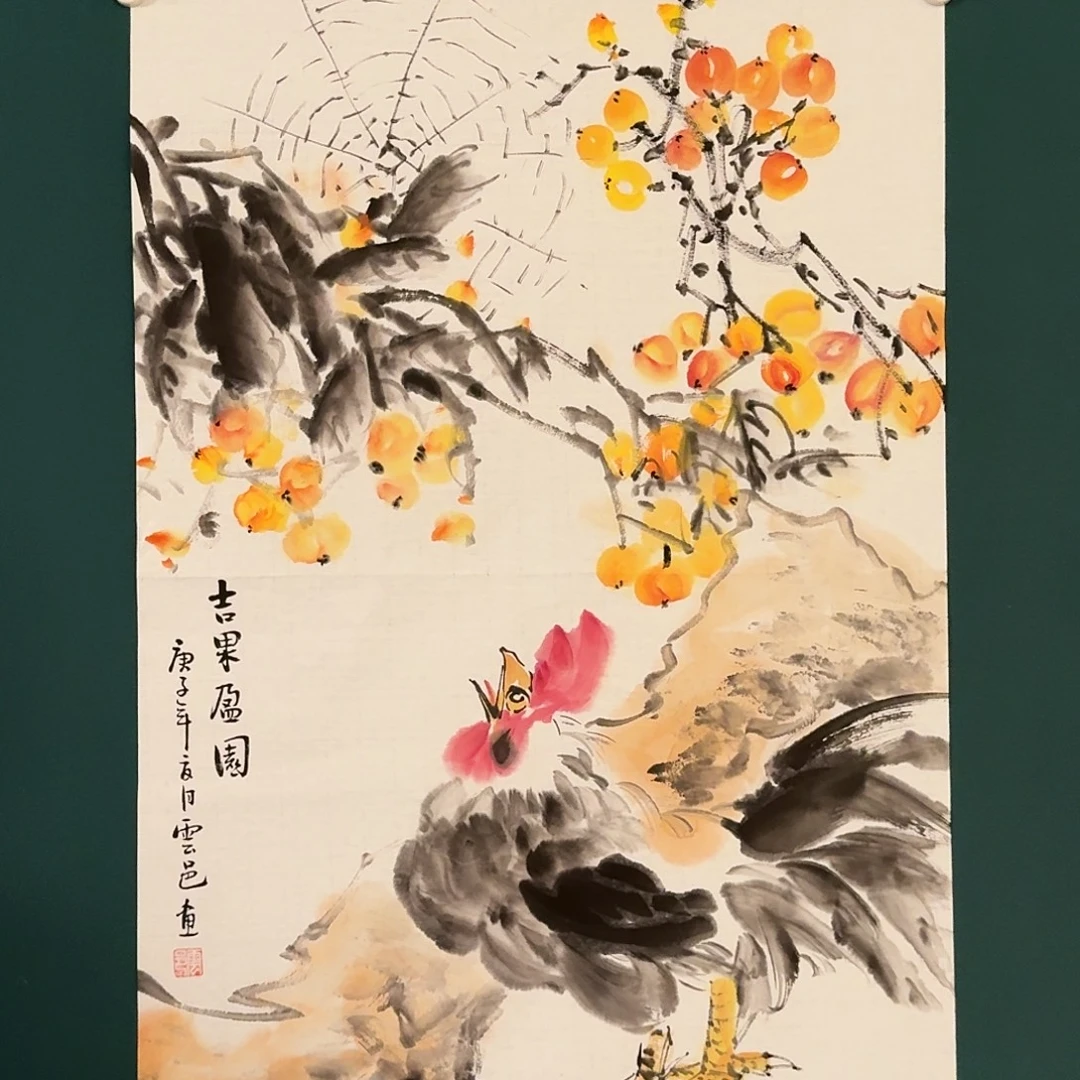 吉果盈園
庚子年夏月雲邑畫